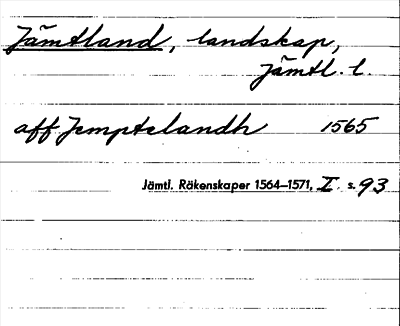 Jämtland, landskap,
Jämtl. l.
aff Jemptelandh 1565
Jämtl. Räkenskaper 1564–1571, I. s. 93